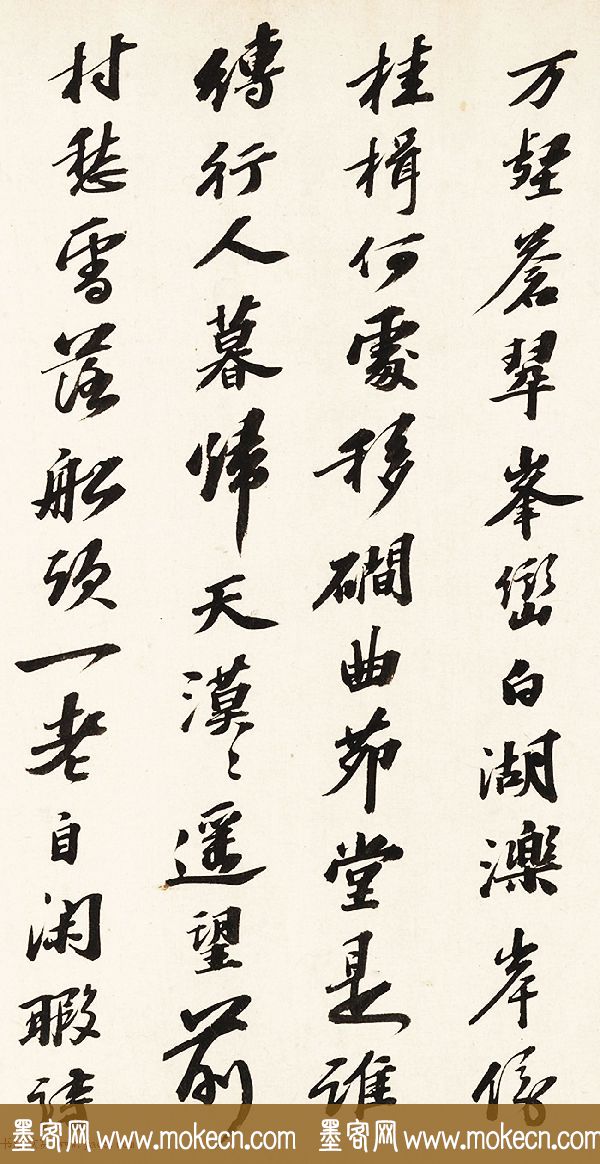 万壑蒼翠峯巒白湖濼岸傍
桂楫何處移磵曲茆堂是誰
縛行人暮歸天漠〻遥望前
村愁雪落船頭一老自閑暇
墨客网 www.mokecn.com 墨客网 www.mokecn.com